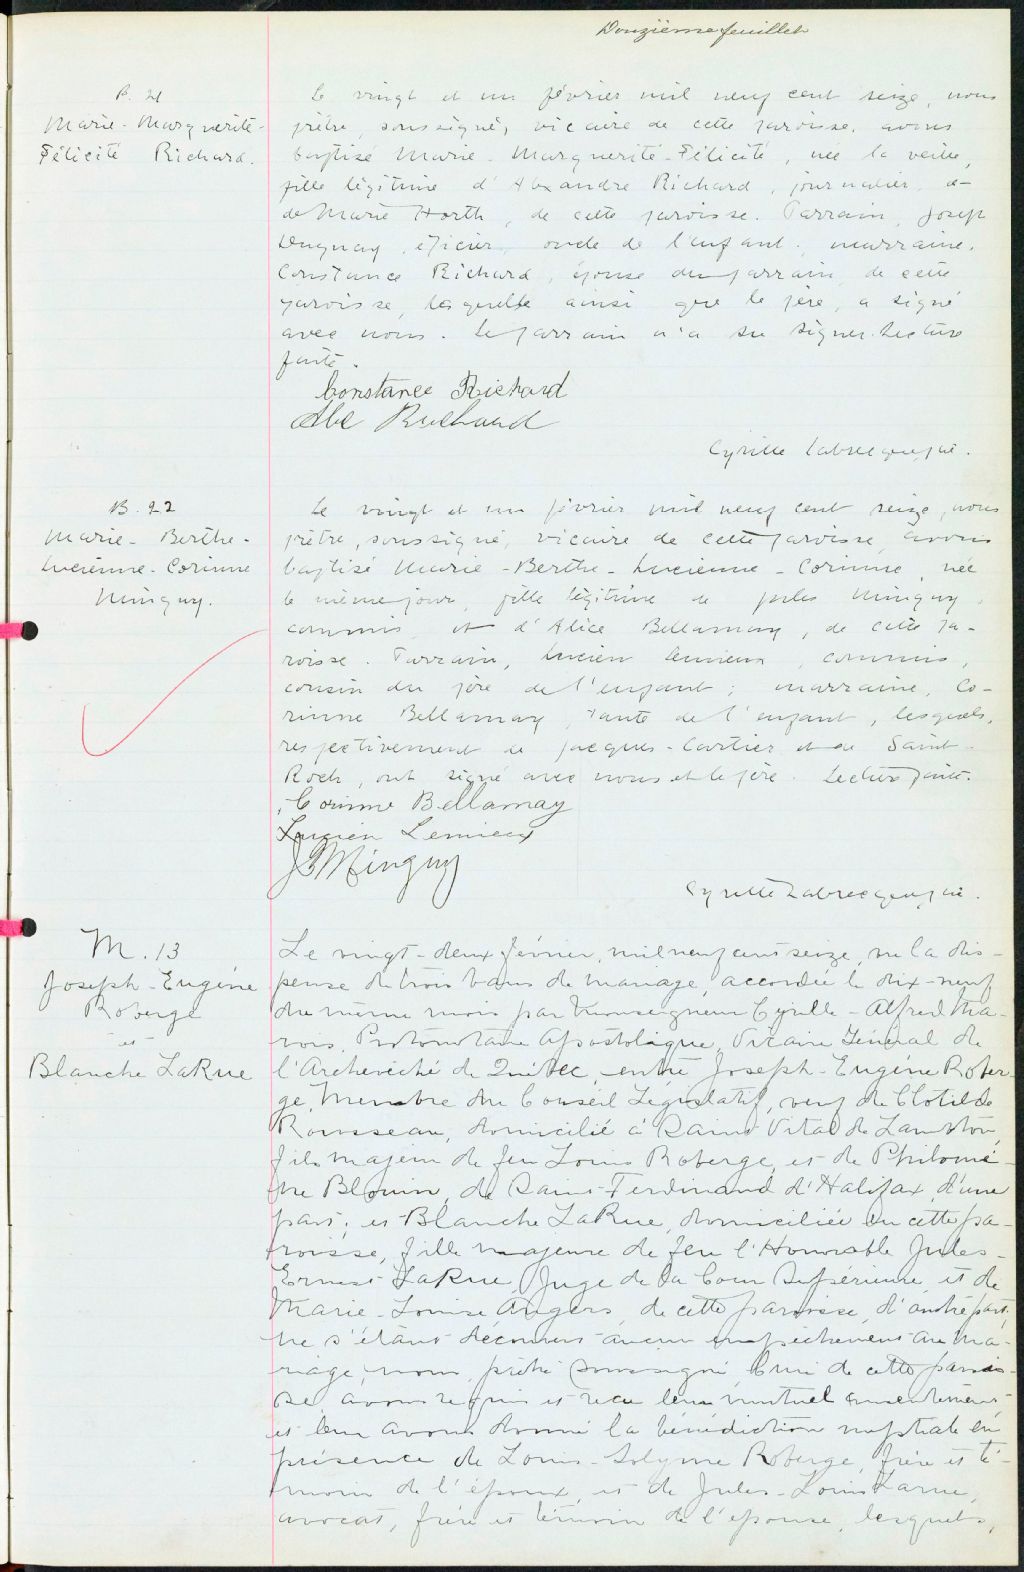 Douzième feuillet
B. 21
Marie-Marguerite-
Félicité Richard.
Le vingt et un février mil neuf cent seize, nous
prêtre, soussigné, vicaire de cette paroisse, avons
baptisé Marie-Marguerite-Félicité, née la veille,
fille légitime d'Alexandre Richard, journalier, &
de Marie Horth, de cette paroisse. Parrain, Joseph
Duguay, épicier, oncle de l'enfant; marraine,
Constance Richard, épouse du parrain, de cette
paroisse, laquelle ainsi que le père, a signé
avec nous. Le parrain n'a su signer. Lecture
faite.
Constance Richard
Alex Richard
Cyrille Labrecque, ptre.
B. 22
Marie-Berthe-
Lucienne-Corinne
Minguy.
Le vingt et un février mil neuf cent seize, nous
prêtre, soussigné, vicaire de cette paroisse, avons
baptisé Marie-Berthe-Lucienne-Corinne, née
le même jour, fille légitime de Jules Minguy,
commis, et d'Alice Bellamay, de cette pa-
roisse. Parrain, Lucien Lemieux, commis,
cousin du père de l'enfant; marraine, Co-
rinne Bellamay, tante de l'enfant, lesquels,
respectivement de Jacques-Cartier et de Saint-
Roch, ont signé avec nous et le père. Lecture faite.
Corinne Bellamay
Lucien Lemieux
J Minguy
Cyrille Labrecque, ptre.
M. 13
Joseph-Eugène
Roberge
et
Blanche LaRue
Le vingt-deux février, mil neuf cent seize, vu la dis-
pense de trois bans de mariage, accordée le dix-neuf
du même mois par Monseigneur Cyrille-Alfred Ma-
rois, Protonotaire Apostolique, Vicaire Général de
l'Archevêché de Québec, entre Joseph-Eugène Rober-
ge, Membre du Conseil Législatif, veuf de Clotilde
Rousseau, domicilié à Saint Vital de Lambton,
fils majeur de feu Louis Roberge, et de Philomè-
ne Blouin, de Saint-Ferdinand d'Halifax, d'une
part; et Blanche LaRue, domiciliée en cette pa-
roisse, fille majeure de feu l'Honorable Jules-
Ernest LaRue, Juge de la Cour Supérieure, et de
Marie-Louise Angers, de cette paroisse, d'autre part
ne s'étant découvert aucun empêchement au ma-
riage, nous, prêtre soussigné Curé de cette parois-
se, avons requis et reçu leur mutuel consentement
et leur avons donné la bénédiction nuptiale en
présence de Louis-Solyme Roberge, frère et té-
moin de l'époux, et de Jules-Louis Larue,
avocat, frère et témoin de l'épouse, lesquels,